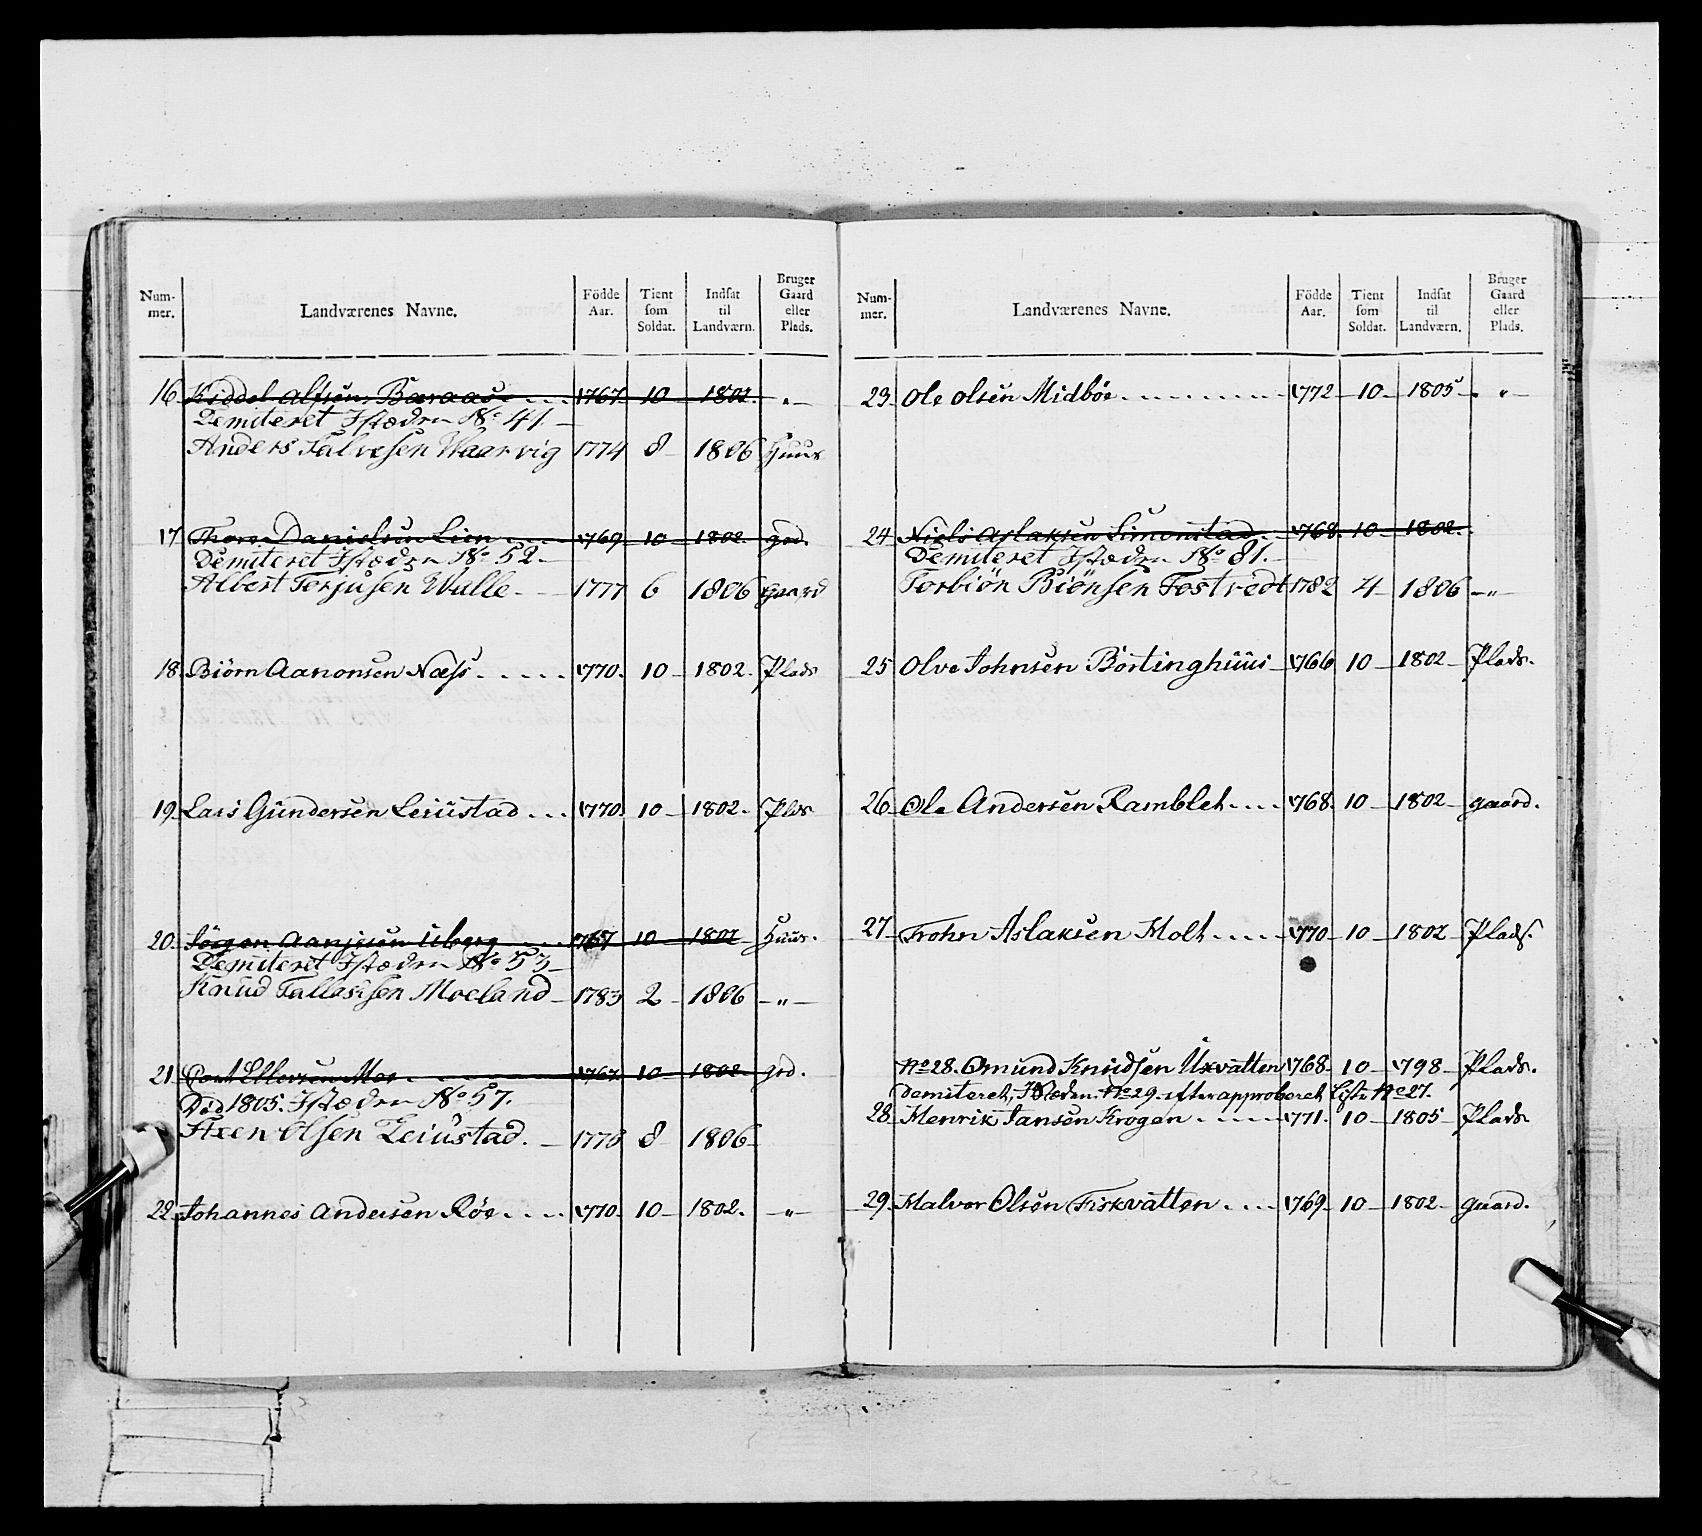 Num-mer. Landværenes Navne. Födde Aar. Tient som Soldat. Indsat til Landværn. Bruger Gaard eller Plads.
16 Kiddel Alfsen Baraas 1767 10 1802. „
Demiteret Istæden No. 41.
Anders Talvesen Waarvig 1774 8 1806 Huus
17 Thore Danielsen Lien 1769 10 1802. grd.
Demiteret Istæden No. 52.
Albert Terjusen Walle 1777 6 1806 gaard
18. Biörn Aanonsen Næss 1770. 10 1802. Plads
19. Lars Gundersen Leiustad 1770. 10 1802. Plds
20. Jörgen 1767 10 1802 Huus.
Demiteret Istæden No. 53
Knud Tallaksen Moeland 1783 2 1806 „
21. Ellevsen Moe 1767 10 1802. grd.
Död 1805. Istæden No. 57.
Axen Olsen Leiustad. 1776 8 1806
22. Johannes Andersen Röe 1770. 10 1802. „
Num-mer. Landværenes Navne. Födde Aar. Tient som Soldat. Indsat til Landværn. Bruger Gaard eller Plads.
23. Ole Olsen Midböe 1772 10 1805 „
24 Niels Aslaksen Simonstad 1768. 10 1802.
Demiteret Istæden No. 81.
Torbiön Biönsen Fostvedt 1782 4 1806 „
25 Olve Johnsen Börtinghuus 1766 10 1802 Plads.
26. Ole Andersen Ramblet 1768. 10 1802 gaard.
27. Frohn Aslaksen Holt 1770 10 1802 Plads.
No 28. Omund Knudsen Uxvatten 1768. 10 1798 Plads.
demiteret, Istæden No 29. efter approberet Liste No 27.
28. Henrik Jansen Krogen 1771. 10 1805 Plads
29. Halvor Olsen Fiskvatten 1769. 10 1802 gaard.